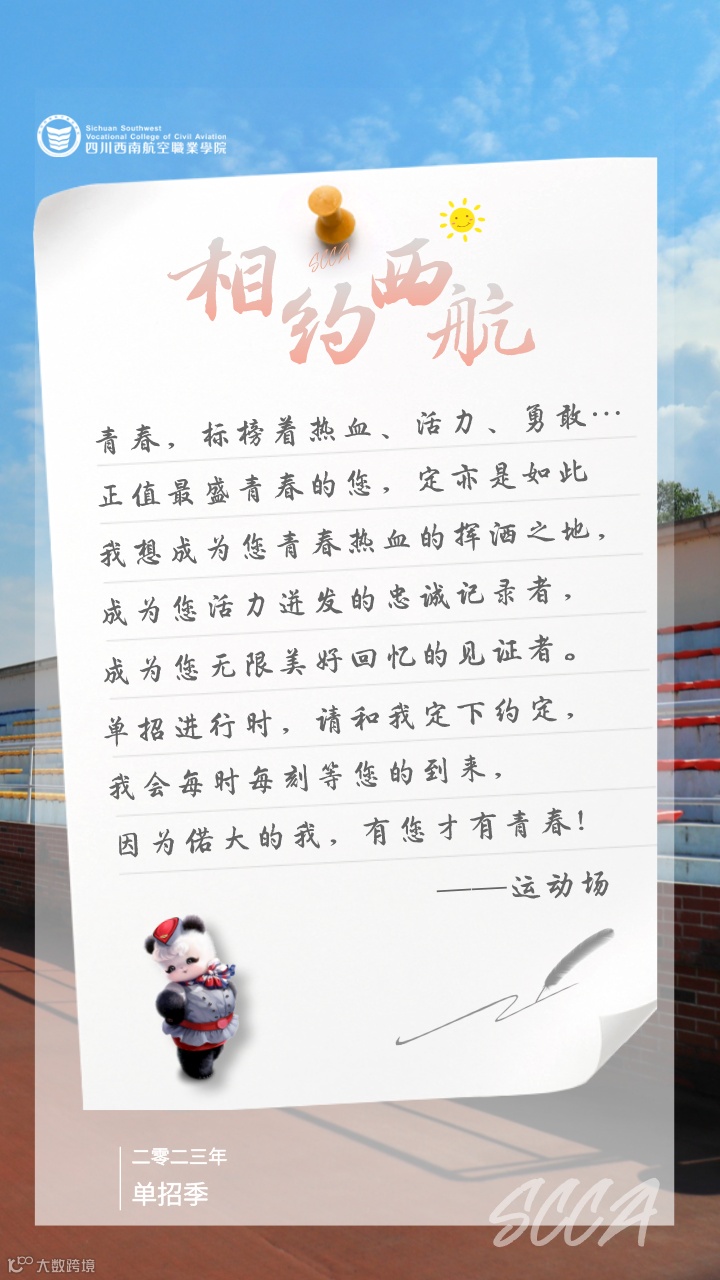 Sichuan Southwest
Vocational College of Civil Aviation
四川西南航空職業學院
相约西航
SCCA
青春，标榜着热血、活力、勇敢…
正值最盛青春的您，定亦是如此
我想成为您青春热血的挥洒之地，
成为您活力迸发的忠诚记录者，
成为您无限美好回忆的见证者。
单招进行时，请和我定下约定，
我会每时每刻等您的到来，
因为偌大的我，有您才有青春！
——运动场
二零二三年
单招季
SCCA
大数跨境